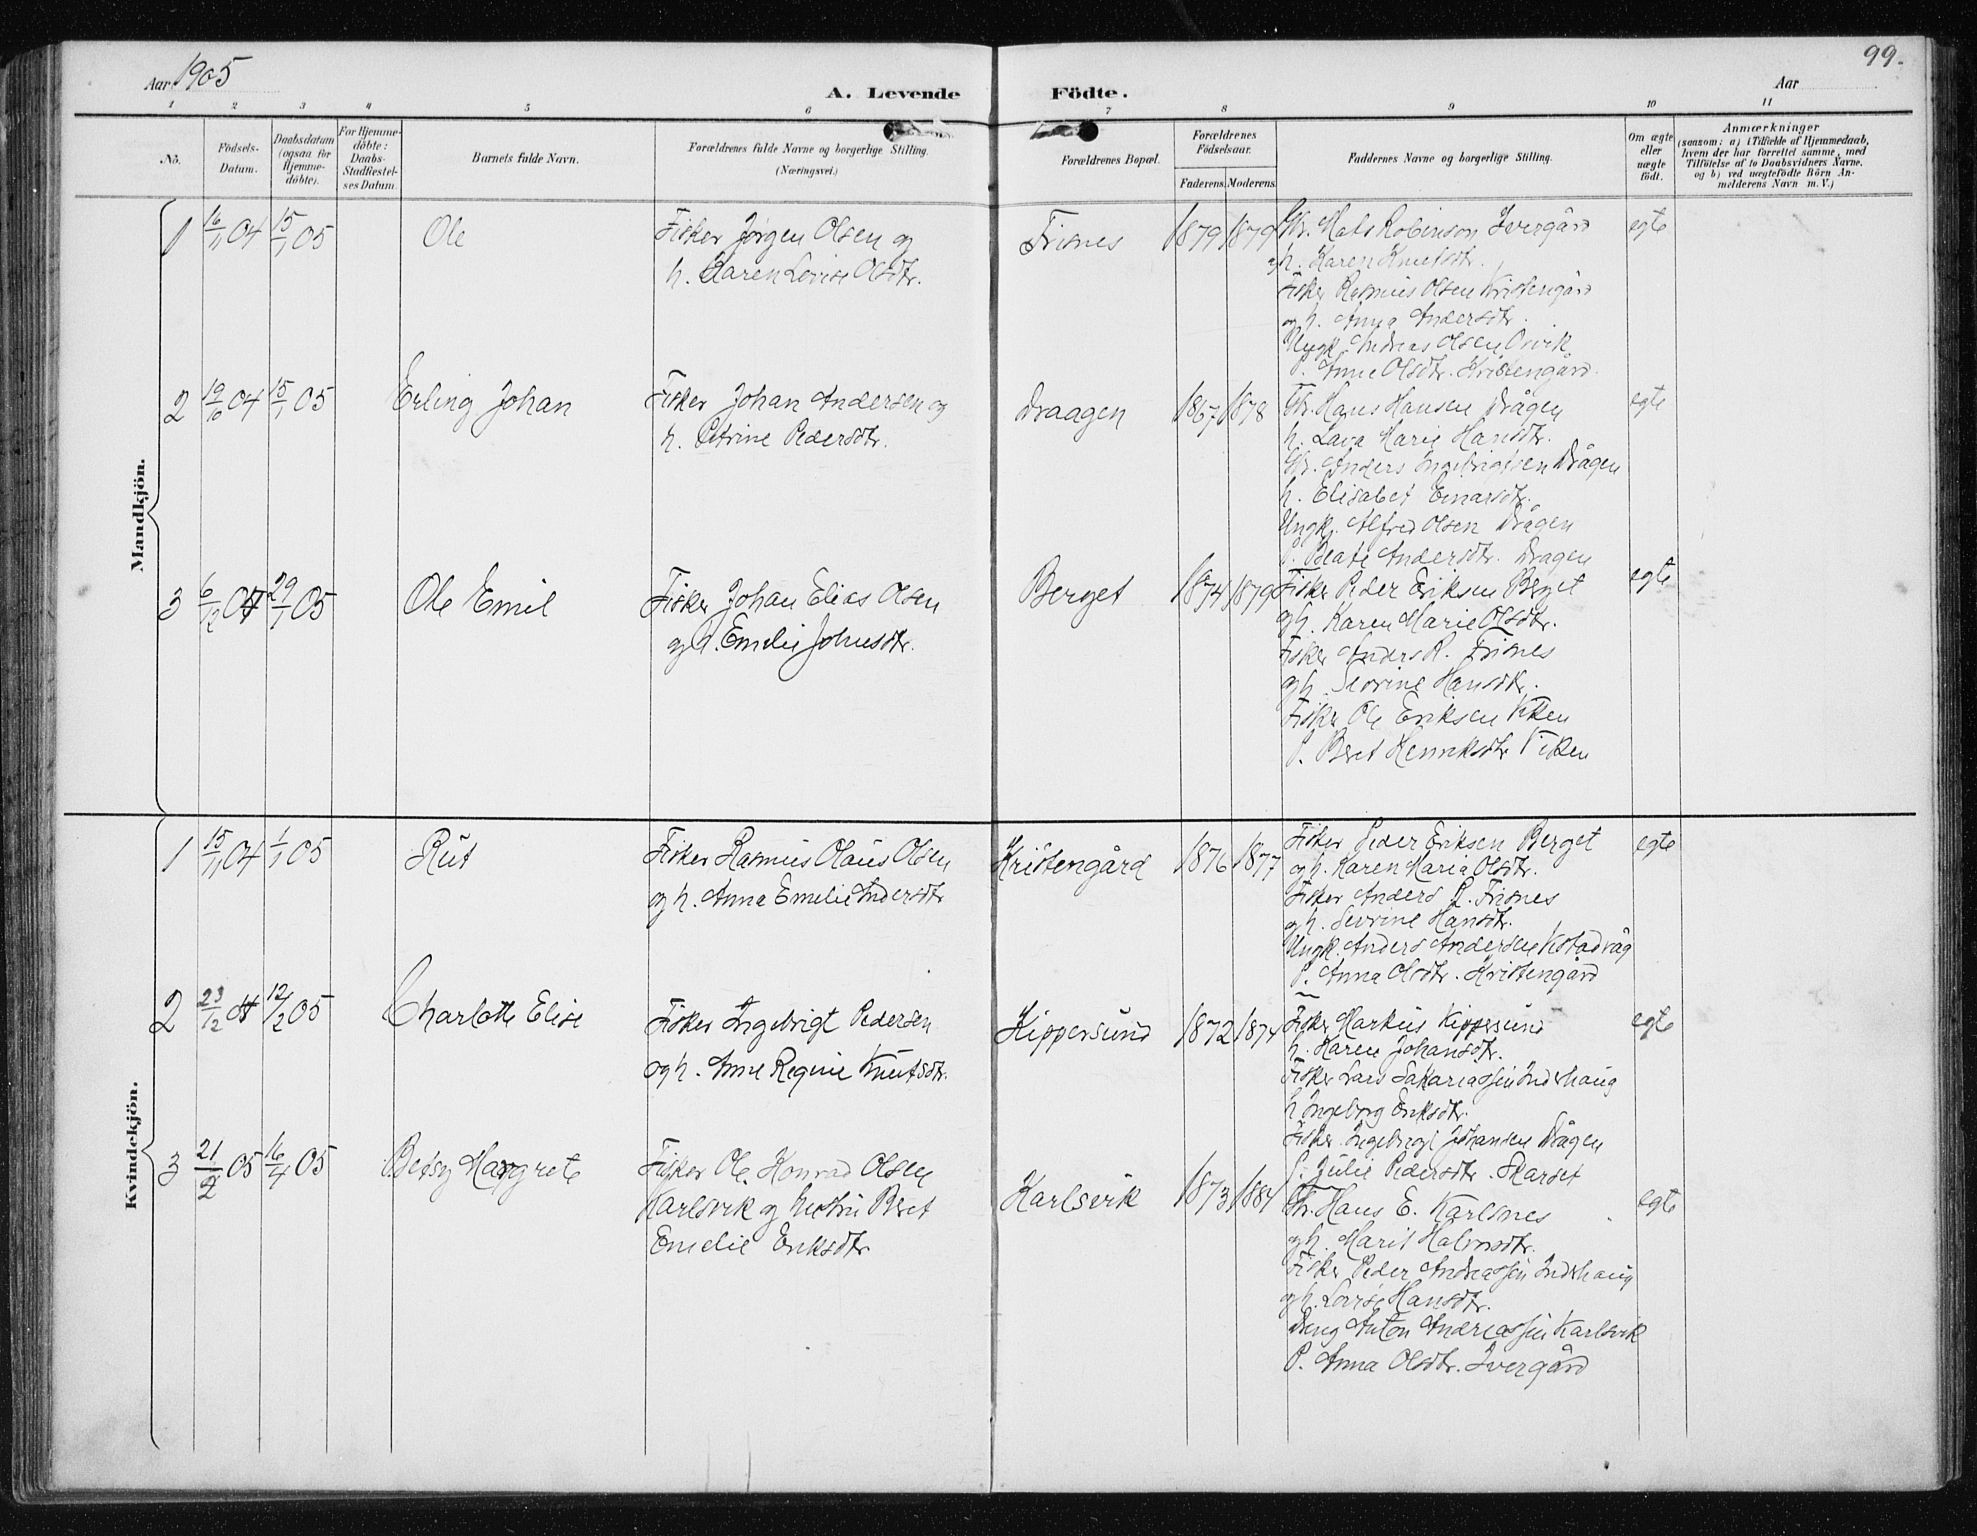 99.
Aar 1905
A. Levende Födte.
Aar
1 2 3 4 5 6 7 8 9 10 11
No.
Födsels-
Datum.
Daabsdatum
(ogsaa for
Hjemme-
döbte).
For Hjemme-
döbte:
Daabs-
Stadfæstel-
ses Datum.
Barnets fulde Navn.
Forældrenes fulde Navne og borgerlige Stilling.
(Næringsvei.)
Forældrenes Bopæl.
Forældrenes
Födselsaar.
Faderens. Moderens.
Faddernes Navne og borgerlige Stilling.
Om ægte
eller
uægte
födt.
Anmærkninger
(saasom: a) i Tilfælde af Hjemmedaab,
hvem der har forrettet samme, med
Tilföielse af to Daabsvidners Navne,
og b) ved uægtefödte Börn An-
melderens Navn m. V.)
Mandkjön.
1 16/11 04 15/1 05 Ole
Fisker Jørgen Olsen og
h. Karen Lovise Olsdtr.
Frisnes 1879 1879
Gbr. Mats Robinson Ivergård
og h. Karen Knutsdtr.
Fisker Rasmus Olsen Kristengård
og h. Anna Andersdtr.
Ungk. Andreas Olsen Orvik
P. Anne Olsdtr. Kristengård.
egte
2 19/10 04 15/1 05 Erling Johan
Fisker Johan Andersen og
h. Petrine Pedersdtr.
Draagen 1867 1878
Gbr. Hans Hansen Drågen
h. Lava Marie Hansdtr.
Gbr. Anders Ingebrigtsen Drågen
h. Elisabet Einarsdtr.
Ungk. Alfred Olsen Drågen
P. Beate Andersdtr. Dragen
egte
3 6/12 04 29/1 05 Ole Emil
Fisker Johan Elias Olsen
og h. Emelie Johnsdtr.
Berget 1874 1879
Fisker Peder Eriksen Berget
og h. Karen Marie Olsdtr.
Fisker Anders R. Frisnes
og h. Sevrine Hansdtr.
Fisker Ole Eriksen Viken
P. Beret Henriksdtr Viken
egte
Kvindekjön.
1 15/11 04 1/1 05 Rut
Fisker Rasmus Olaus Olsen
og h. Anna Emelie Andersdtr
Kristengård 1876 1877
Fisker Peder Eriksen Berget
og h. Karen Maria Olsdtr.
Fisker Anders R. Frisnes
og h. Sevrine Hansdtr.
Ungk. Anders Andersen Kstadvåg
P. Anna Olsdtr. Kristengård
egte
2 23/12 04 12/2 05 Charlotte Elise
Fisker Ingebrigt Pedersen
og h. Anne Regine Knutsdtr.
Kippersund 1872 1874
Fisker Markus Kippersund
h. Karen Johansdtr.
Fisker Lars Sakariassen Inderhaug
h. Ingeborg Eriksdtr.
Fisker Ingebrigt Johansen Drågen
P. Julie Pedersdtr. Skarset
egte
3 21/2 05 16/4 05 Betsy Margrete
Fisker Ole Konrad Olsen
Karlsvik og hustru Beret
Emelie Eriksdtr
Karlsvik 1873 1884
Gbr. Hans E. Karlsnes
og h. Marit Halvorsdtr.
Fisker Peder Andreassen Inderhaug
og h. Lovise Hansdtr.
Dreng Anton Andreassen Karlsvik
P. Anna Olsdtr. Ivergård
egte